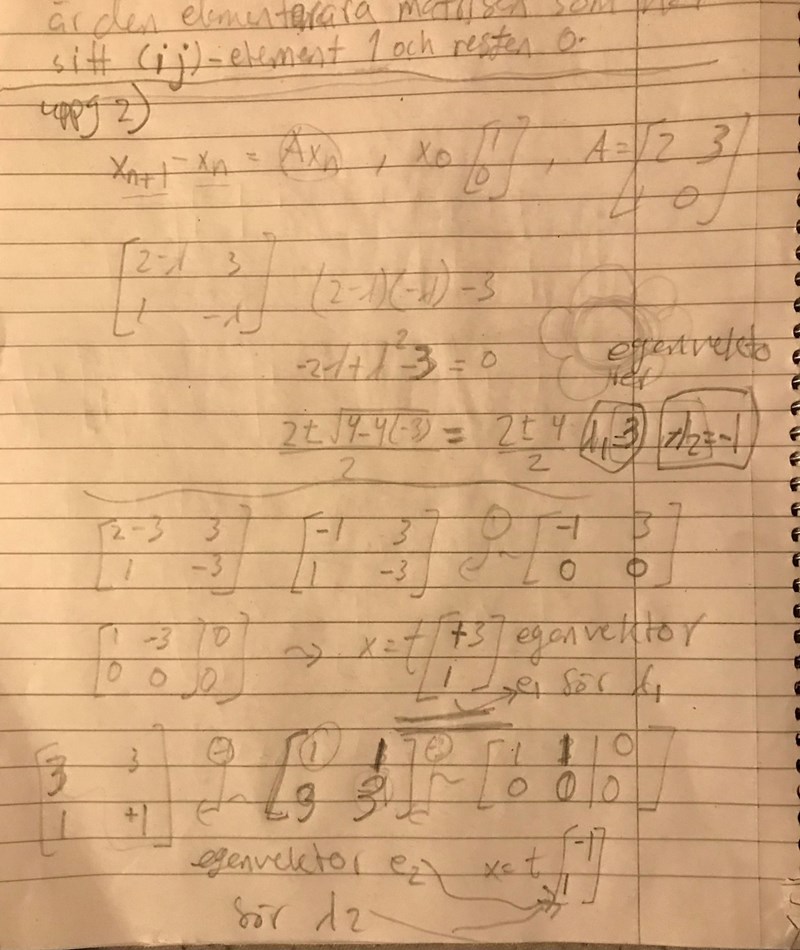 är den elementära matrisen som har
sitt (ij)-element 1 och resten 0.
uppg 2)
x_{n+1} - x_n = Ax_n , x_0 [1; 0] , A = [2 3; 1 0]
[2-λ 3; 1 -λ] (2-λ)(-λ) -3
-2λ+λ²-3 = 0 egenvekto
rer
2±√4-4(-3) / 2 = 2±4 / 2 λ_1=3 λ_2=-1
[2-3 3; 1 -3] [-1 3; 1 -3] ~ [-1 3; 0 0]
[1 -3 | 0; 0 0 | 0] → x = t [+3; 1] egenvektor
e_1 för λ_1
[3 3; 1 +1] ~ [1 1; 3 3] ~ [1 1 | 0; 0 0 | 0]
egenvektor e_2 x = t [-1; 1]
för λ2